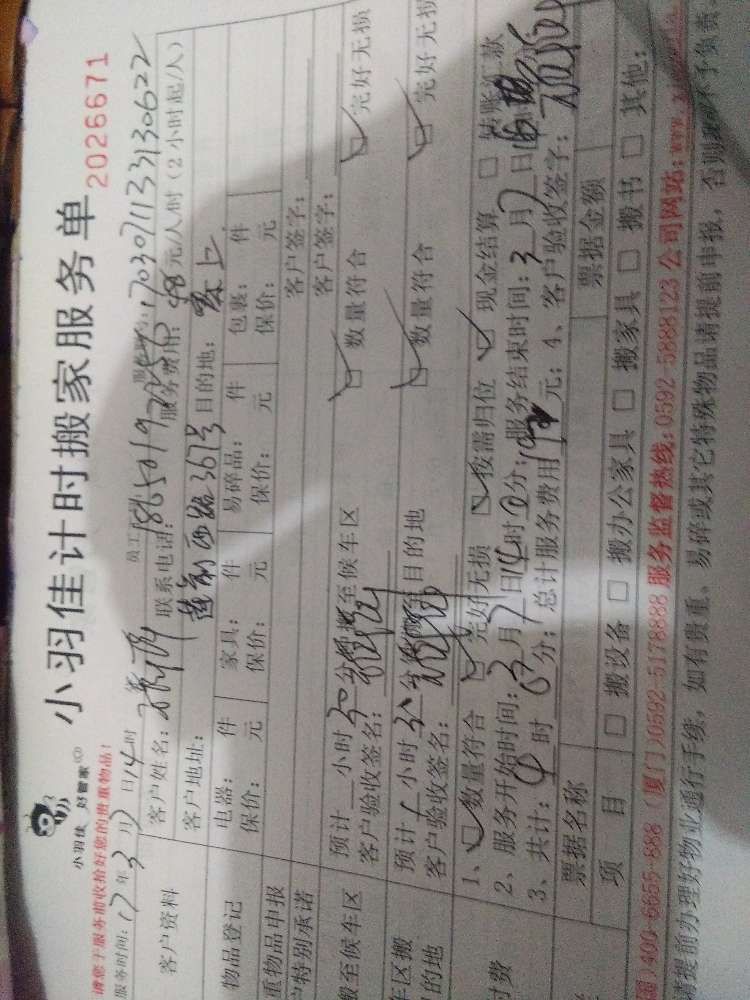 小羽佳计时搬家服务单
小羽佳 好管家
2026671
请您于服务前收拾好您的贵重物品!
服务时间: 17年3月7日14时
员工
1703071133130622
客户资料
客户姓名:
联系电话:
服务费用: 48元/人/时(2小时起/人)
客户地址: 莲前西路367号
目的地:
物品登记
电器: 件 家具: 件 易碎品: 件 包裹: 件
保价: 元 保价: 元 保价: 元 保价: 元
重物品申报
客户签字:
户特别承诺
客户签字:
搬至候车区
预计 小时30分钟搬至候车区 数量符合 完好无损
客户验收签名:
车区搬
的地
预计 小时30分钟 目的地 数量符合 完好无损
客户验收签名:
付费
1、 数量符合 完好无损 按需归位 现金结算 转账汇款
2、服务开始时间:3月7日14时0分;服务结束时间:3月7日
3、共计: 4 时 分; 总计服务费用 元; 4、客户验收签字:
票据名称 票据金额
项目 搬设备 搬办公家具 搬家具 搬书 其他:
400-6655-888 (厦门)0592-5178888 服务监督热线:0592-5888123 公司网站:www.
请提前办理好物业通行手续, 如有贵重、易碎或其它特殊物品请提前申报, 否则 不予负责